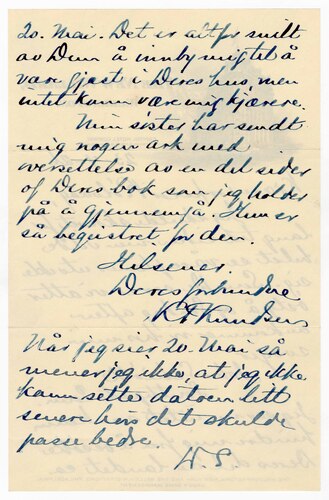 20. Mai. Det er altfor snilt
av Dem å innby mig til å
være gjest i Deres hus, men
intet kann være mig kjærere.
Min søster har sendt
mig nogen ark med
oversettelse av en del sider
of Deres bok som jeg holder
på å gjennemgå. Hun er
så begistret for den.
Hilsener.
Deres forbundne
K Knudsen
Når jeg sier 20. Mai så
mener jeg ikke, at jeg ikke
kann sette datoen litt
senere hvis det skulde
passe bedre.